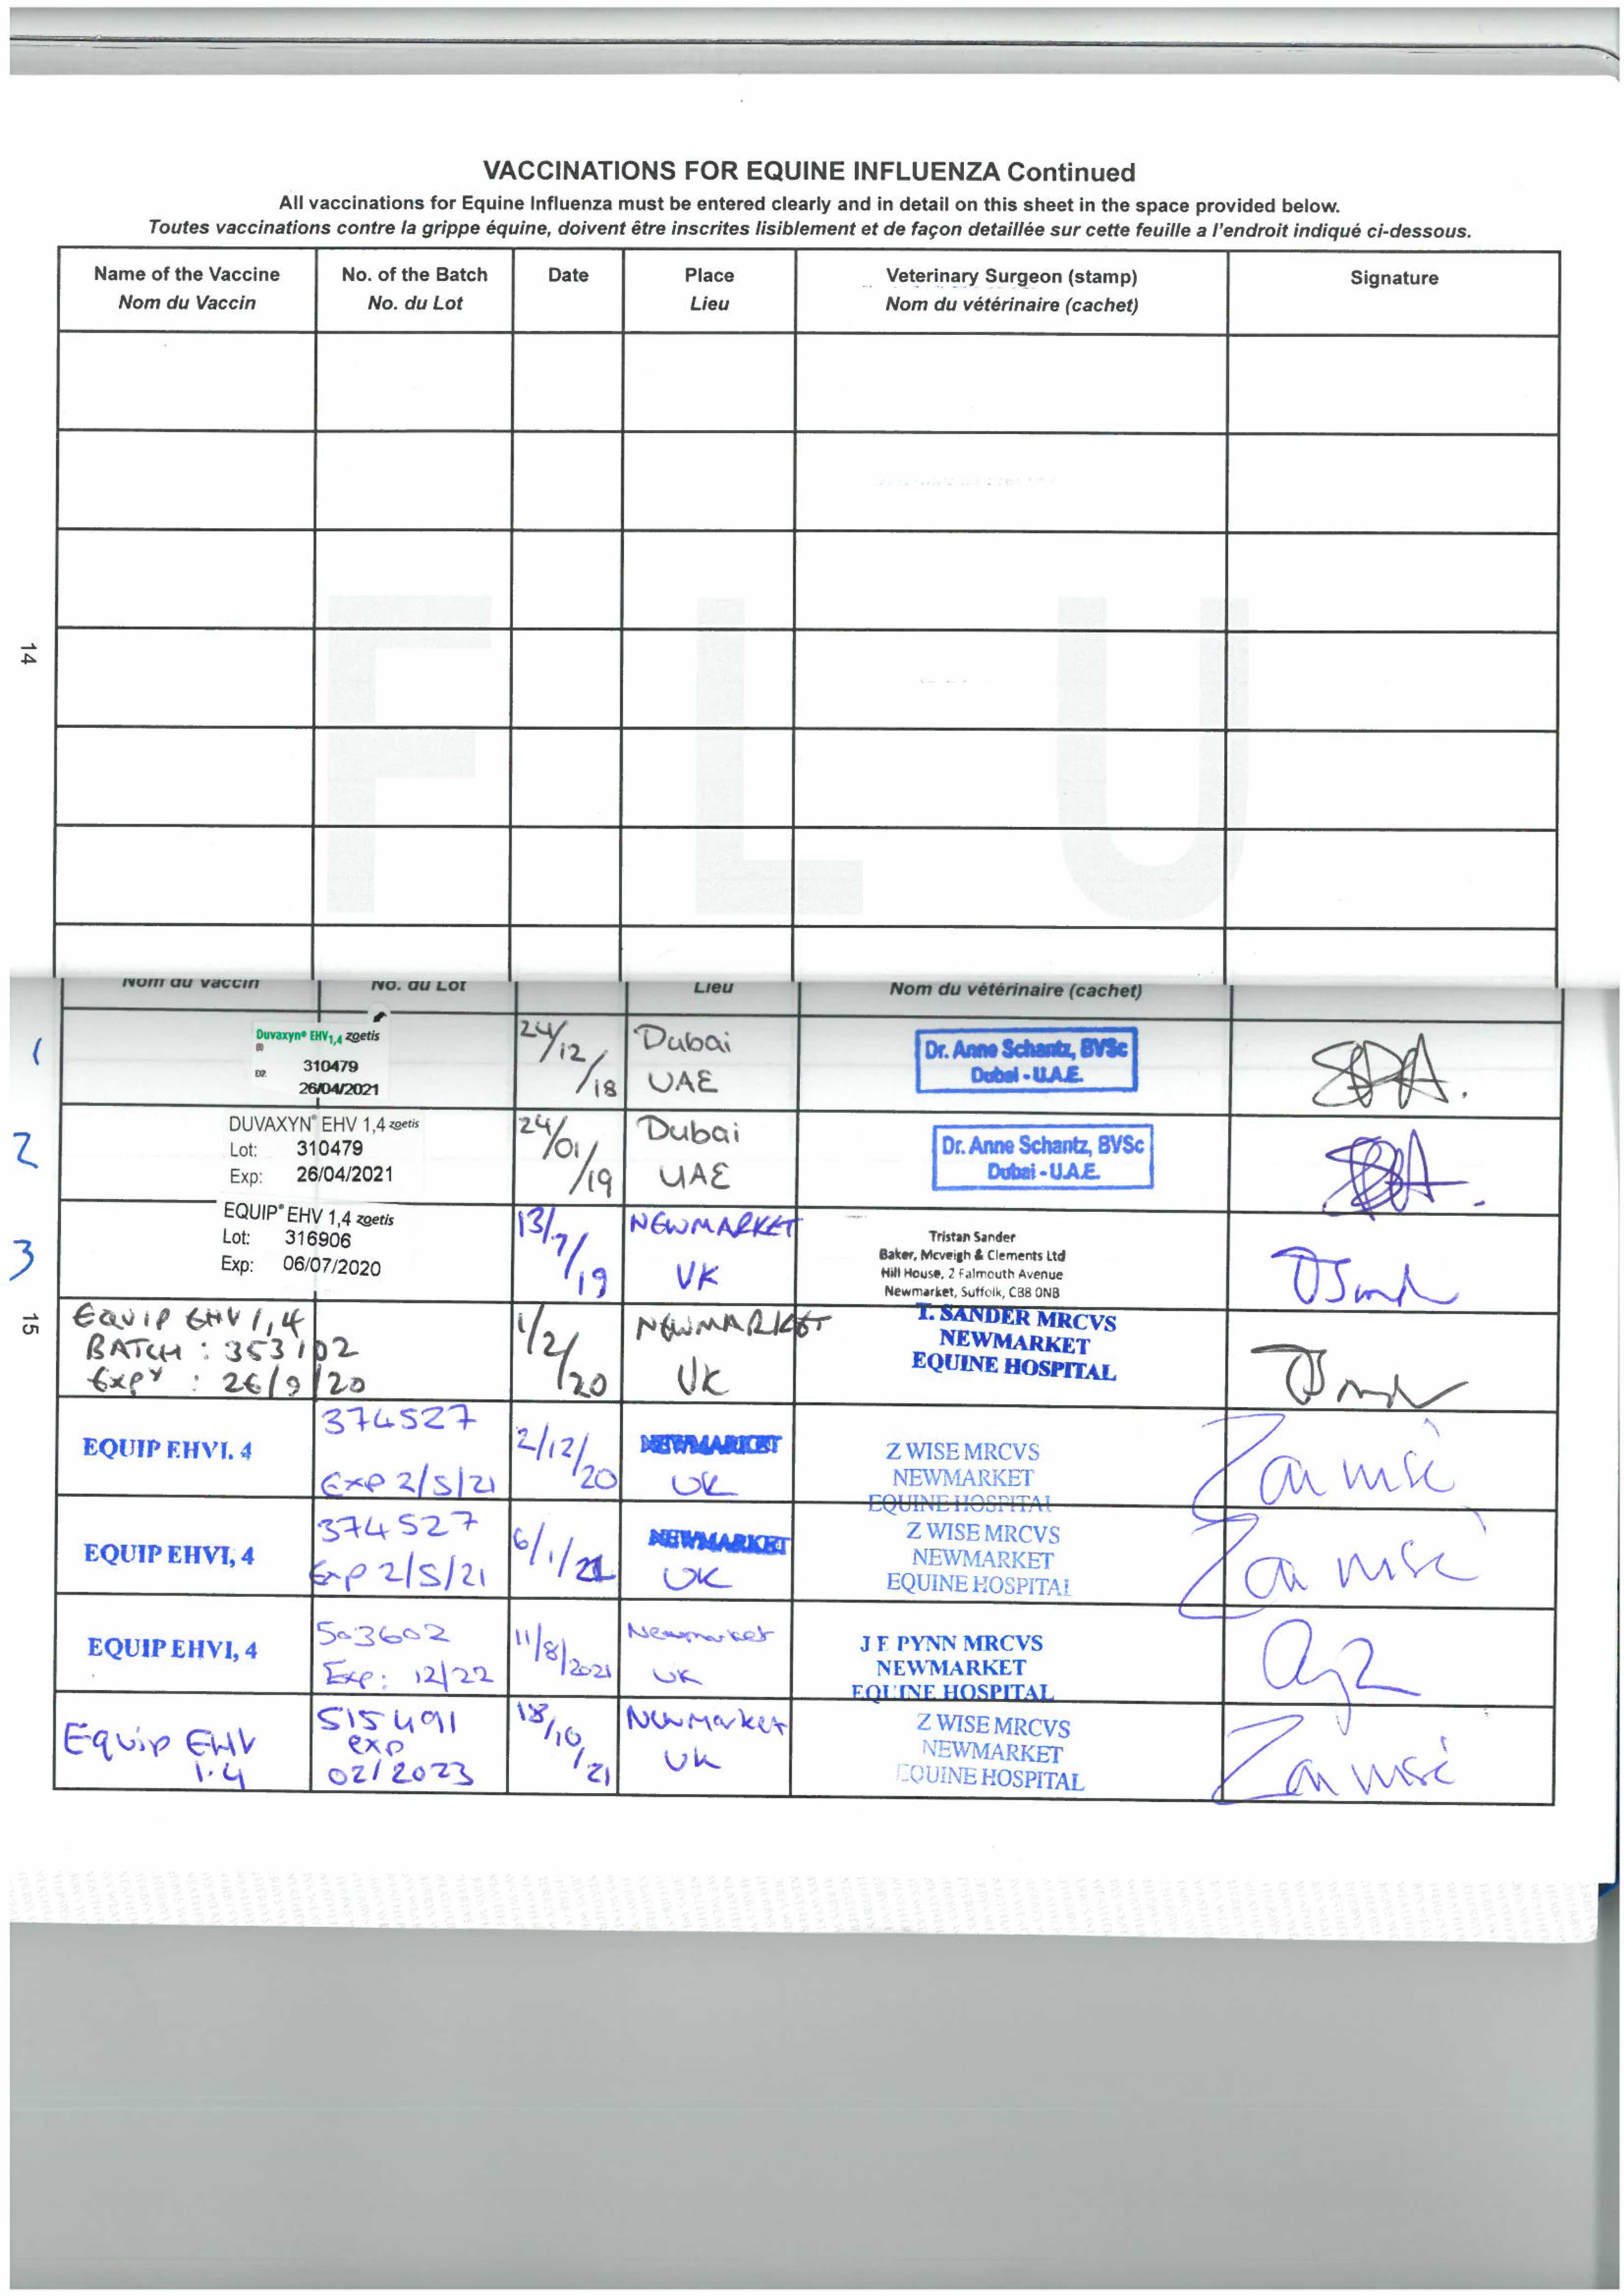 VACCINATIONS FOR EQUINE INFLUENZA Continued
All vaccinations for Equine Influenza must be entered clearly and in detail on this sheet in the space provided below.
Toutes vaccinations contre la grippe équine, doivent être inscrites lisiblement et de façon detaillée sur cette feuille a l'endroit indiqué ci-dessous.
Name of the Vaccine No. of the Batch Date Place Veterinary Surgeon (stamp) Signature
Nom du Vaccin No. du Lot Lieu Nom du vétérinaire (cachet)
FLU
14
Nom du Vaccin No. du Lot Lieu Nom du vétérinaire (cachet)
1
Duvaxyn® EHV1,4 zoetis
310479
26/04/2021
24/12/18
Dubai
UAE
Dr. Anne Schantz, BVSc
Dubai - U.A.E.
2
DUVAXYN® EHV 1,4 zoetis
Lot: 310479
Exp: 26/04/2021
24/01/19
Dubai
UAE
Dr. Anne Schantz, BVSc
Dubai - U.A.E.
3
EQUIP® EHV 1,4 zoetis
Lot: 316906
Exp: 06/07/2020
13/7/19
NEWMARKET
UK
Tristan Sander
Baker, Mcveigh & Clements Ltd
Hill House, 2 Falmouth Avenue
Newmarket, Suffolk, CB8 0NB
15
EQUIP EHV 1,4
BATCH : 353102
Expy : 26/9/20
1/2/20
NEWMARKET
UK
T. SANDER MRCVS
NEWMARKET
EQUINE HOSPITAL
EQUIP EHV1, 4
374527
Exp 2/5/21
2/12/20
NEWMARKET
UK
Z WISE MRCVS
NEWMARKET
EQUINE HOSPITAL
EQUIP EHV1, 4
374527
Exp 2/5/21
6/1/21
NEWMARKET
UK
Z WISE MRCVS
NEWMARKET
EQUINE HOSPITAL
EQUIP EHV1, 4
503602
Exp: 12/22
11/8/2021
Newmarket
UK
J F PYNN MRCVS
NEWMARKET
EQUINE HOSPITAL
Equip EHV
1.4
515491
exp
02/2023
18/10/21
Newmarket
UK
Z WISE MRCVS
NEWMARKET
EQUINE HOSPITAL